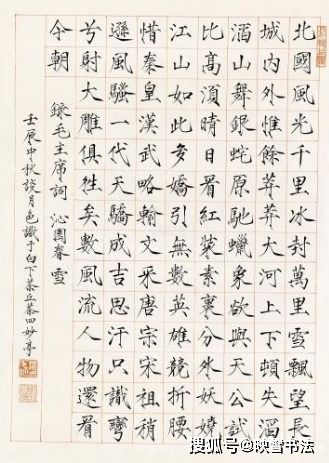 北國風光千里冰封萬里雪飄望長
城內外惟餘莽莽大河上下頓失滔
滔山舞銀蛇原馳蠟象欲與天公試
比高須晴日看紅裝素裹分外妖嬈
江山如此多嬌引無數英雄競折腰
惜秦皇漢武略輸文采唐宗宋祖稍
遜風騷一代天驕成吉思汗只識彎
弓射大雕俱往矣數風流人物還看
今朝
錄毛主席詞 沁園春雪
壬辰中秋談月色識于白下茶丘茶四妙亭
搜狐号@映雪书法